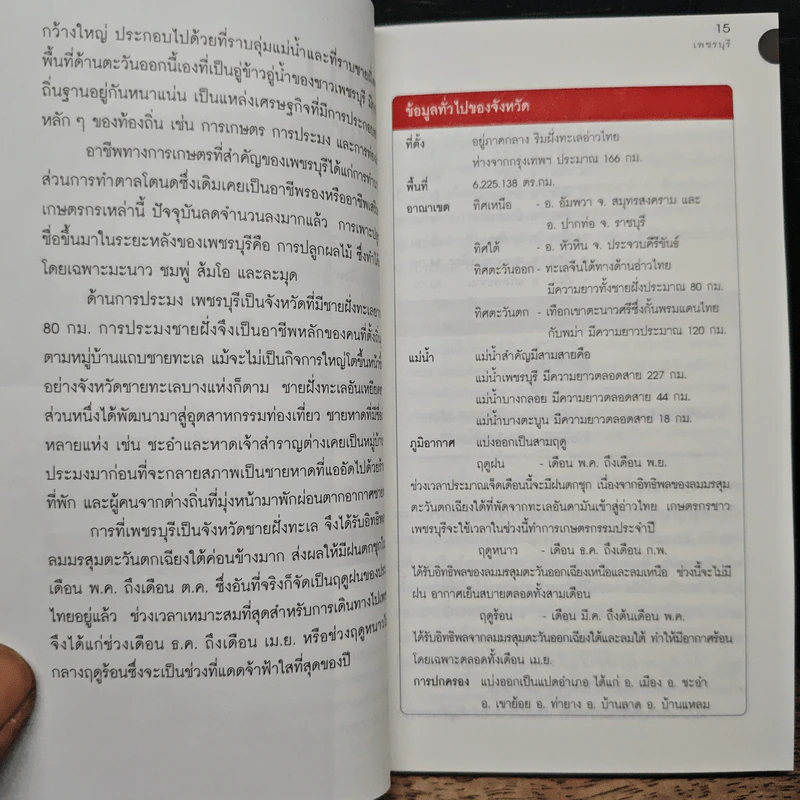 กว้างใหญ่ ประกอบไปด้วยที่ราบลุ่มแม่น้ำและที่ราบชายฝั่ง
พื้นที่ด้านตะวันออกนี้เองที่เป็นอู่ข้าวอู่น้ำของชาวเพชรบุรี
ถิ่นฐานอยู่กันหนาแน่น เป็นแหล่งเศรษฐกิจที่มีการประกอบ
หลัก ๆ ของท้องถิ่น เช่น การเกษตร การประมง และการท่อง
อาชีพทางการเกษตรที่สำคัญของเพชรบุรีได้แก่การทำนา
ส่วนการทำตาลโตนดซึ่งเดิมเคยเป็นอาชีพรองหรืออาชีพเสริม
เกษตรกรเหล่านี้ ปัจจุบันลดจำนวนลงมากแล้ว การเพาะปลูก
ชื่อขึ้นมาในระยะหลังของเพชรบุรีคือ การปลูกผลไม้ ซึ่งทำ
โดยเฉพาะมะนาว ชมพู่ ส้มโอ และละมุด
ด้านการประมง เพชรบุรีเป็นจังหวัดที่มีชายฝั่งทะเลยาว
80 กม. การประมงชายฝั่งจึงเป็นอาชีพหลักของคนที่ตั้งถิ่น
ตามหมู่บ้านแถบชายทะเล แม้จะไม่เป็นกิจการใหญ่โตขึ้นหน้า
อย่างจังหวัดชายทะเลบางแห่งก็ตาม ชายฝั่งทะเลอันเหยียด
ส่วนหนึ่งได้พัฒนามาสู่อุตสาหกรรมท่องเที่ยว ชายหาดที่มีชื่อ
หลายแห่ง เช่น ชะอำและหาดเจ้าสำราญต่างเคยเป็นหมู่บ้าน
ประมงมาก่อนที่จะกลายสภาพเป็นชายหาดที่แออัดไปด้วย
ที่พัก และผู้คนจากต่างถิ่นที่มุ่งหน้ามาพักผ่อนตากอากาศชาย
การที่เพชรบุรีเป็นจังหวัดชายฝั่งทะเล จึงได้รับอิทธิพล
ลมมรสุมตะวันตกเฉียงใต้ค่อนข้างมาก ส่งผลให้มีฝนตกชุก
เดือน พ.ค. ถึงเดือน ต.ค. ซึ่งอันที่จริงก็จัดเป็นฤดูฝนของ
ไทยอยู่แล้ว ช่วงเวลาเหมาะสมที่สุดสำหรับการเดินทางไป
จึงได้แก่ช่วงเดือน ธ.ค. ถึงเดือน เม.ย. หรือช่วงฤดูหนาว
กลางฤดูร้อนซึ่งจะเป็นช่วงที่แดดจ้าฟ้าใสที่สุดของปี
15
เพชรบุรี
ข้อมูลทั่วไปของจังหวัด
ที่ตั้ง อยู่ภาคกลาง ริมฝั่งทะเลอ่าวไทย
ห่างจากกรุงเทพฯ ประมาณ 166 กม.
พื้นที่ 6,225.138 ตร.กม.
อาณาเขต ทิศเหนือ - อ. อัมพวา จ. สมุทรสงคราม และ
อ. ปากท่อ จ. ราชบุรี
ทิศใต้ - อ. หัวหิน จ. ประจวบคีรีขันธ์
ทิศตะวันออก - ทะเลจีนใต้ทางด้านอ่าวไทย
มีความยาวทั้งชายฝั่งประมาณ 80 กม.
ทิศตะวันตก - เทือกเขาตะนาวศรีซึ่งกั้นพรมแดนไทย
กับพม่า มีความยาวประมาณ 120 กม.
แม่น้ำ แม่น้ำสำคัญมีสามสายคือ
แม่น้ำเพชรบุรี มีความยาวตลอดสาย 227 กม.
แม่น้ำบางกลอย มีความยาวตลอดสาย 44 กม.
แม่น้ำบางตะบูน มีความยาวตลอดสาย 18 กม.
ภูมิอากาศ แบ่งออกเป็นสามฤดู
ฤดูฝน - เดือน พ.ค. ถึงเดือน พ.ย.
ช่วงเวลาประมาณเจ็ดเดือนนี้จะมีฝนตกชุก เนื่องจากอิทธิพลของลมมรสุม
ตะวันตกเฉียงใต้ที่พัดจากทะเลอันดามันเข้าสู่อ่าวไทย เกษตรกรชาว
เพชรบุรีจะใช้เวลาในช่วงนี้ทำการเกษตรกรรมประจำปี
ฤดูหนาว - เดือน ธ.ค. ถึงเดือน ก.พ.
ได้รับอิทธิพลของลมมรสุมตะวันออกเฉียงเหนือและลมเหนือ ช่วงนี้จะไม่มี
ฝน อากาศเย็นสบายตลอดทั้งสามเดือน
ฤดูร้อน - เดือน มี.ค. ถึงต้นเดือน พ.ค.
ได้รับอิทธิพลจากลมมรสุมตะวันออกเฉียงใต้และลมใต้ ทำให้มีอากาศร้อน
โดยเฉพาะตลอดทั้งเดือน เม.ย.
การปกครอง แบ่งออกเป็นแปดอำเภอ ได้แก่ อ. เมือง อ. ชะอำ
อ. เขาย้อย อ. ท่ายาง อ. บ้านลาด อ. บ้านแหลม